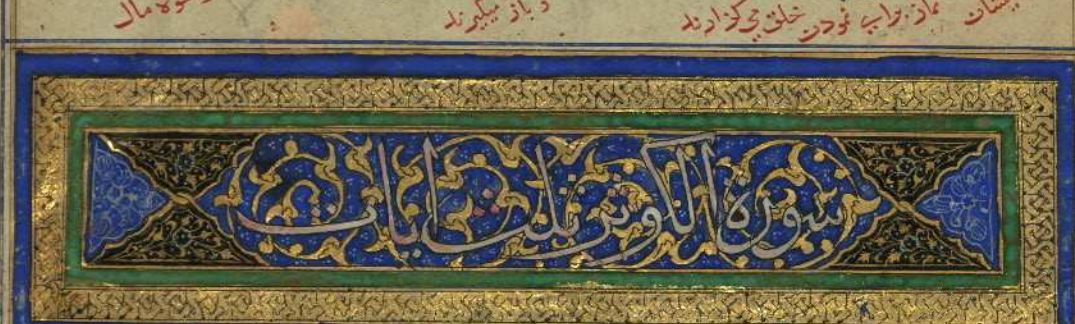 نماز برای نمودن خلق می گزارند
و باز میگیرند
مال
سورة الکوثر ثلث ایات